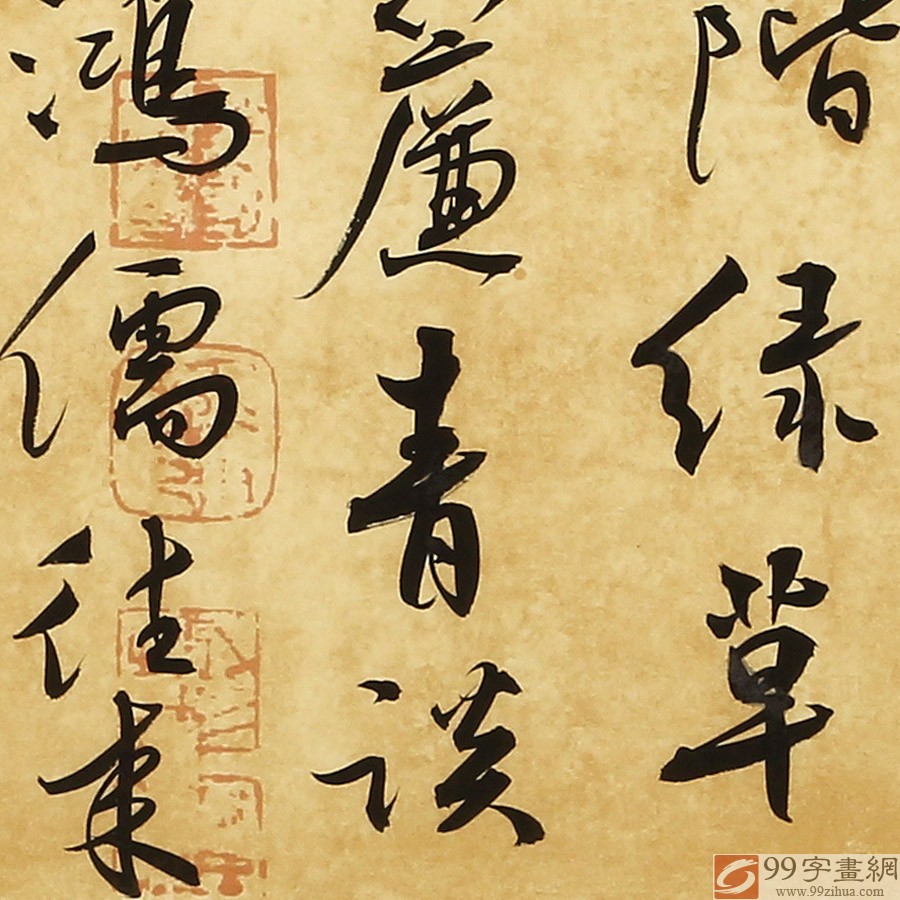 階绿草
簾青谈
鸿儒往来
99字畫網
www.99zihua.com